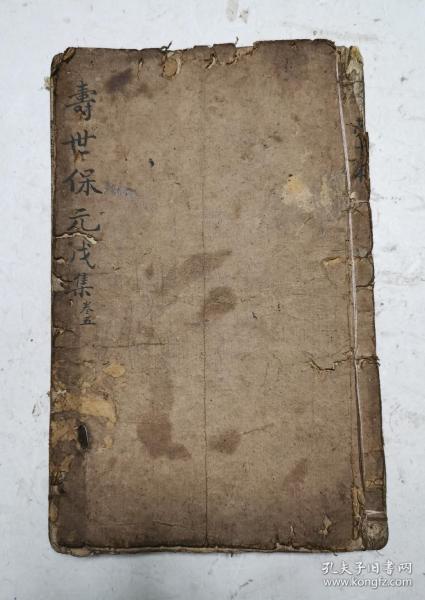 壽世保元戊集卷五
孔夫子旧书网
www.kongfz.com